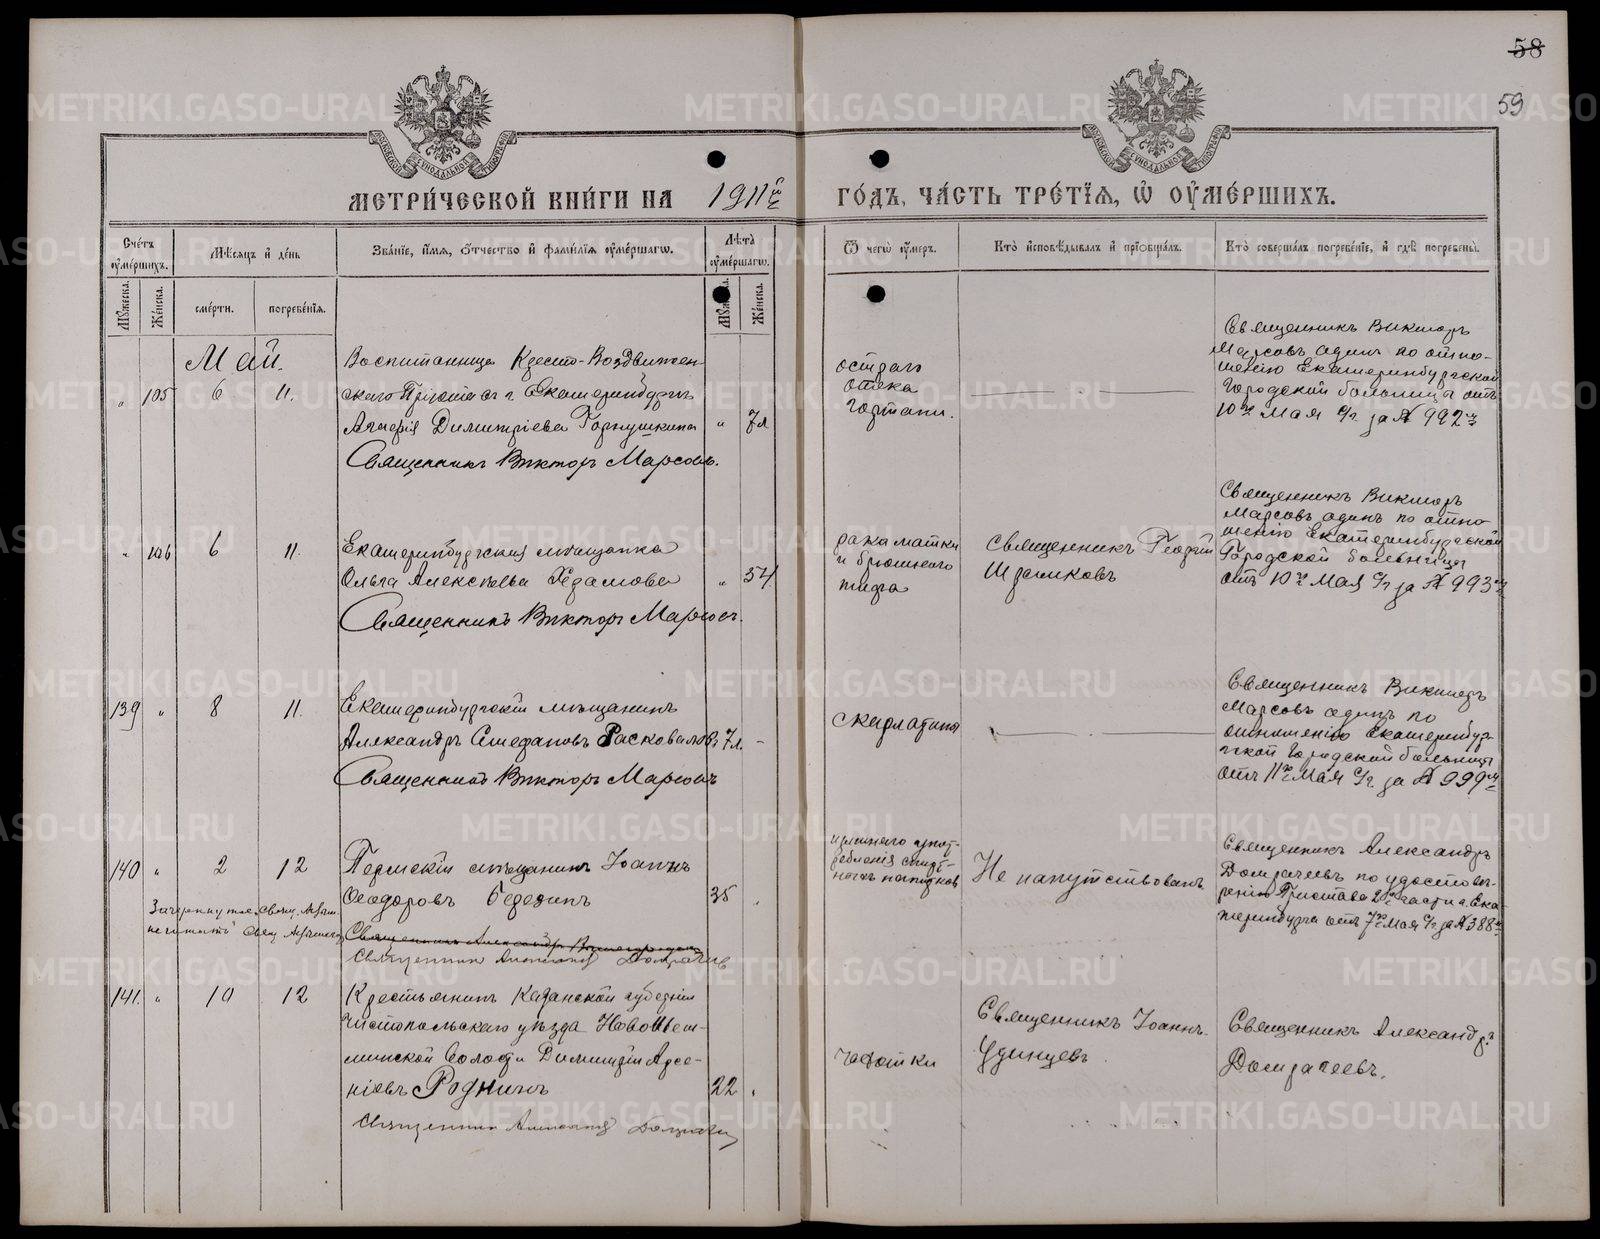 58
59
МЕТРИ́ЧЕСКОЙ КНИ́ГИ НА 1911й
ГО́ДЪ, ЧА́СТЬ ТРЕ́ТЇЯ, Ѡ҆ ОУ҆МЕ́РШИХЪ.
Сче́тъ оу҆ме́ршихъ.
Мѣ́сяцъ и҆ де́нь
Зва́нїе, и҆́мя, о҆́тчество и҆ фами́лїя оу҆ме́ршагѡ.
Лѣ́та оу҆ме́ршагѡ.
Мꙋ́жеска.
Же́нска.
сме́рти.
погребе́нїя.
Мꙋ́жеска.
Же́нска.
Ѿ чегѡ̀ оу҆́меръ.
Кто̀ и҆сповѣ́дывалъ и҆ прїѡбща́лъ.
Кто̀ соверша́лъ погребе́нїе, и҆ гдѣ̀ погребены̀.
Май.
„ 105 6 11.
Воспитанница Кресто-Воздвижен-
скаго Пріюта г. Екатеринбурга
Агафія Димитріева Горнушкина „ 7л
Священникъ Викторъ Марсовъ.
остраго
отека
гортани.
Священникъ Викторъ
Марсовъ одинъ по отно-
шенію Екатеринбургской
Городской больницы отъ
10го Мая с/г за № 992
„ 106 6 11.
Екатеринбургская мѣщанка
Ольга Алексѣева „ 54
Священникъ Викторъ Марсовъ.
рака матки
и брюшного
тифа
Священникъ Георгій
Священникъ Викторъ
Марсовъ одинъ по отно-
шенію Екатеринбургской
Городской больницы
отъ 10го Мая с/г за № 993
139 „ 8 11.
Екатеринбургскій мѣщанинъ
Александръ Стефановъ Расковаловъ 7л. -
Священникъ Викторъ Марсовъ
скарлатина
Священникъ Викторъ
Марсовъ одинъ по
отношенію Екатеринбург-
ской Городской больницы
отъ 11го Мая с/г. за № 999
140 „ 2 12
Пермскій мѣщанинъ Іоаннъ
Ѳеодоровъ Березинъ 35 „
Зачеркнутое
не читать
Священникъ Александръ
Священникъ Александръ Домрачевъ
излишняго упот-
ребленія спирт-
ныхъ напитковъ
Не напутствованъ
Священникъ Александръ
Домрачеевъ по удостовѣ-
ренію Пристава 2й части г. Ека-
теринбурга отъ 7го Мая с/г за № 388
141. „ 10 12
Крестьянинъ Казанской губерніи
Чистопольскаго уѣзда Новошеш-
минской волости Димитрій Арсе-
ніевъ Роднинъ 22 „
Священникъ Александръ Домрачевъ
чахотки
Священникъ Іоаннъ
Удинцевъ
Священникъ Александръ
Домрачеевъ.
METRIKI.GASO-URAL.RU